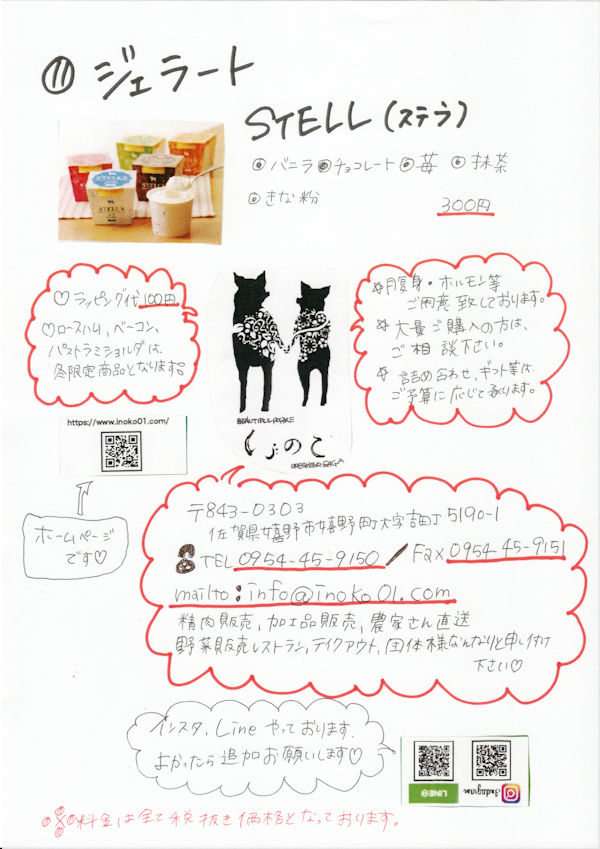 ⑪ ジェラート
STELL (ステラ)
◎バニラ ◎チョコレート ◎苺 ◎抹茶
◎きな粉
300円
STELLA
♡ラッピング代100円
♡ロースハム、ベーコン、
パストラミショルダは、
冬限定商品となります。
☆腹身・ホルモン等
ご用意致しております。
☆大量ご購入の方は、
ご相談下さい。
☆詰め合わせ、ギフト等は
ご予算に応じて承ります。
いのこ
URESHINO SAGA
https://www.inoko01.com/
ホームページ
です♡
〒843-0303
佐賀県嬉野市嬉野町大字吉田丁5190-1
TEL 0954-45-9150 Fax 0954-45-9151
mailto:info@inoko01.com
精肉販売,加工品販売,農家さん直送
野菜販売レストラン,テイクアウト,団体様なんなりと申し付け
下さい♡
インスタ、Lineやっております。
よかったら追加お願いします♡
LINE@
Instagram
※料金は全て税抜き価格となっております。